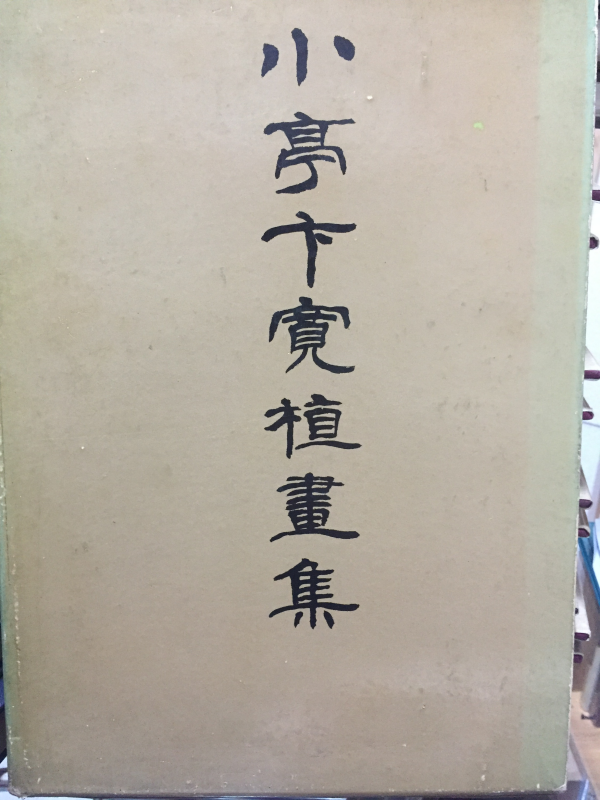 小亭卞寬植畫集